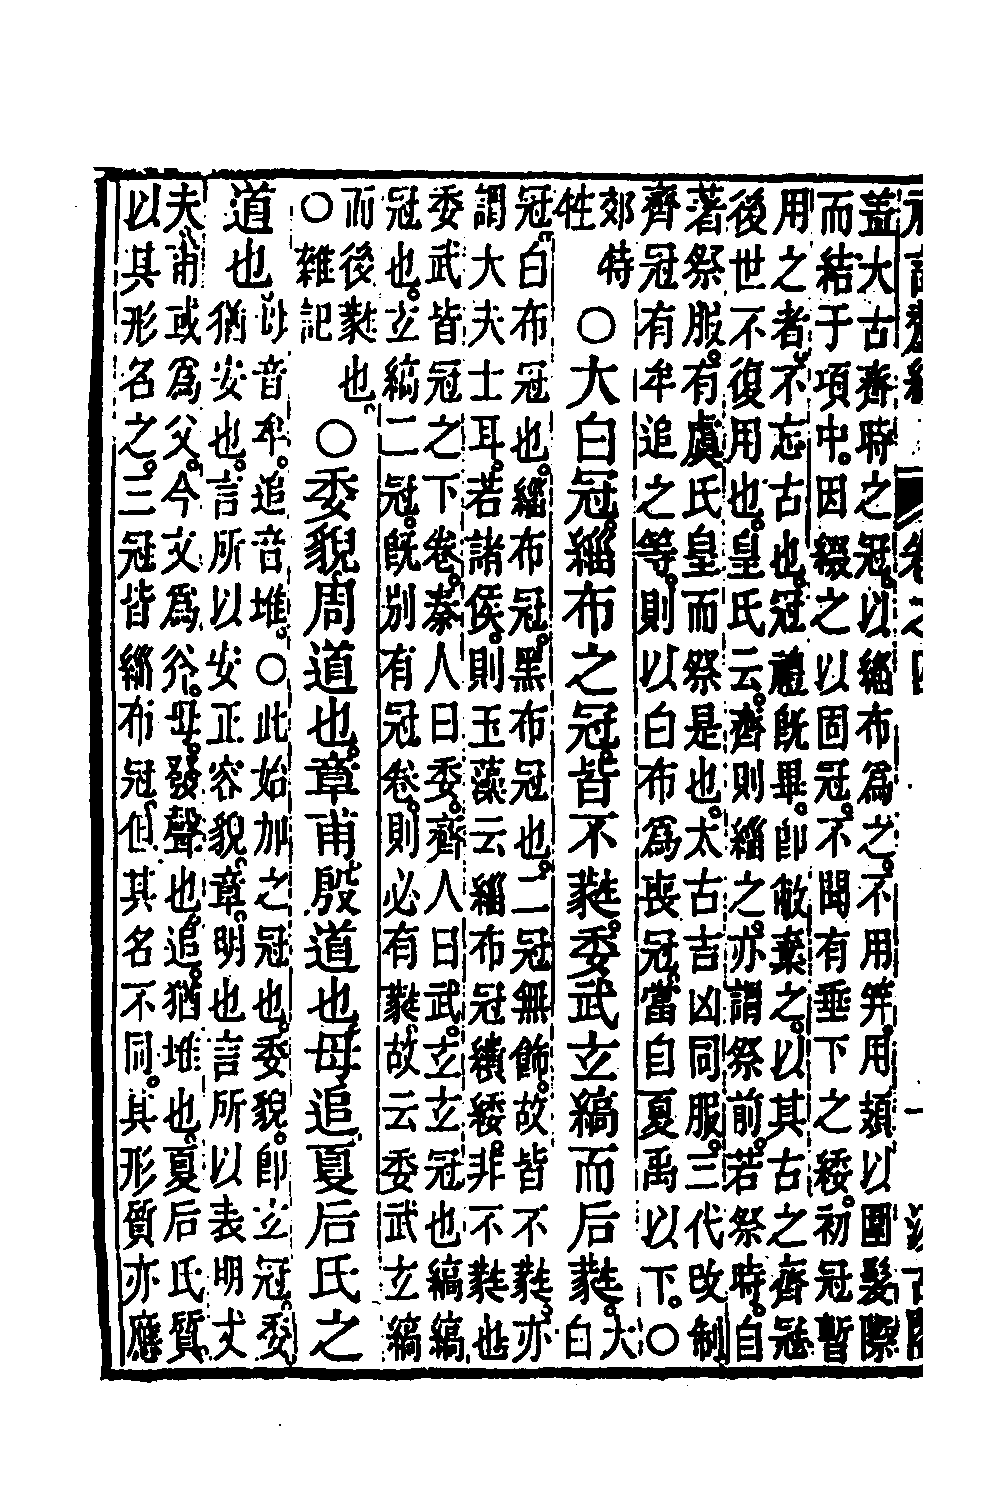 卷之四 一
盖大古齊時之冠以緇布爲之不用笄用頍以圍髮際
而結于項中因綴之以固冠不聞有垂下之緌初冠暫
用之者不忘古也冠禮旣畢卽敝棄之以其古之齊冠
後世不復用也皇氏云齊則緇之亦謂祭前若祭時自
著祭服有虞氏皇而祭是也太古吉凶同服三代改制
齊冠有牟追之等則以白布爲喪冠當自夏禹以下○
郊特
牲
○大白冠緇布之冠皆不蕤委武玄縞而后蕤
大
白
冠白布冠也緇布冠黑布冠也二冠無飾故皆不蕤亦
謂大夫士耳若諸侯則玉藻云緇布冠繢緌非不蕤也
委武皆冠之下卷秦人曰委齊人曰武玄玄冠也縞縞
冠也玄縞二冠旣別有冠卷則必有蕤故云委武玄縞
而後蕤也
○雜記
○委貌周道也章甫殷道也毋追夏后氏之
道也
毋音牟追音堆○此始加之冠也委貌卽玄冠委
猶安也言所以安正容貌章明也言所以表明丈
夫甫或爲父今文爲斧毋發聲也追猶堆也夏后氏質
以其形名之三冠皆緇布冠但其名不同其形質亦應